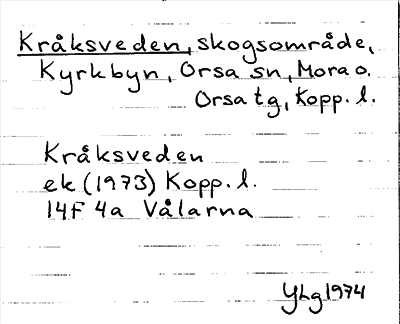 Kråksveden, skogsområde,
Kyrkbyn, Orsa sn, Mora o.
Orsa tg, Kopp. l.
Kråksveden
ek (1973) Kopp. l.
14F 4a Vålarna
YLg 1974